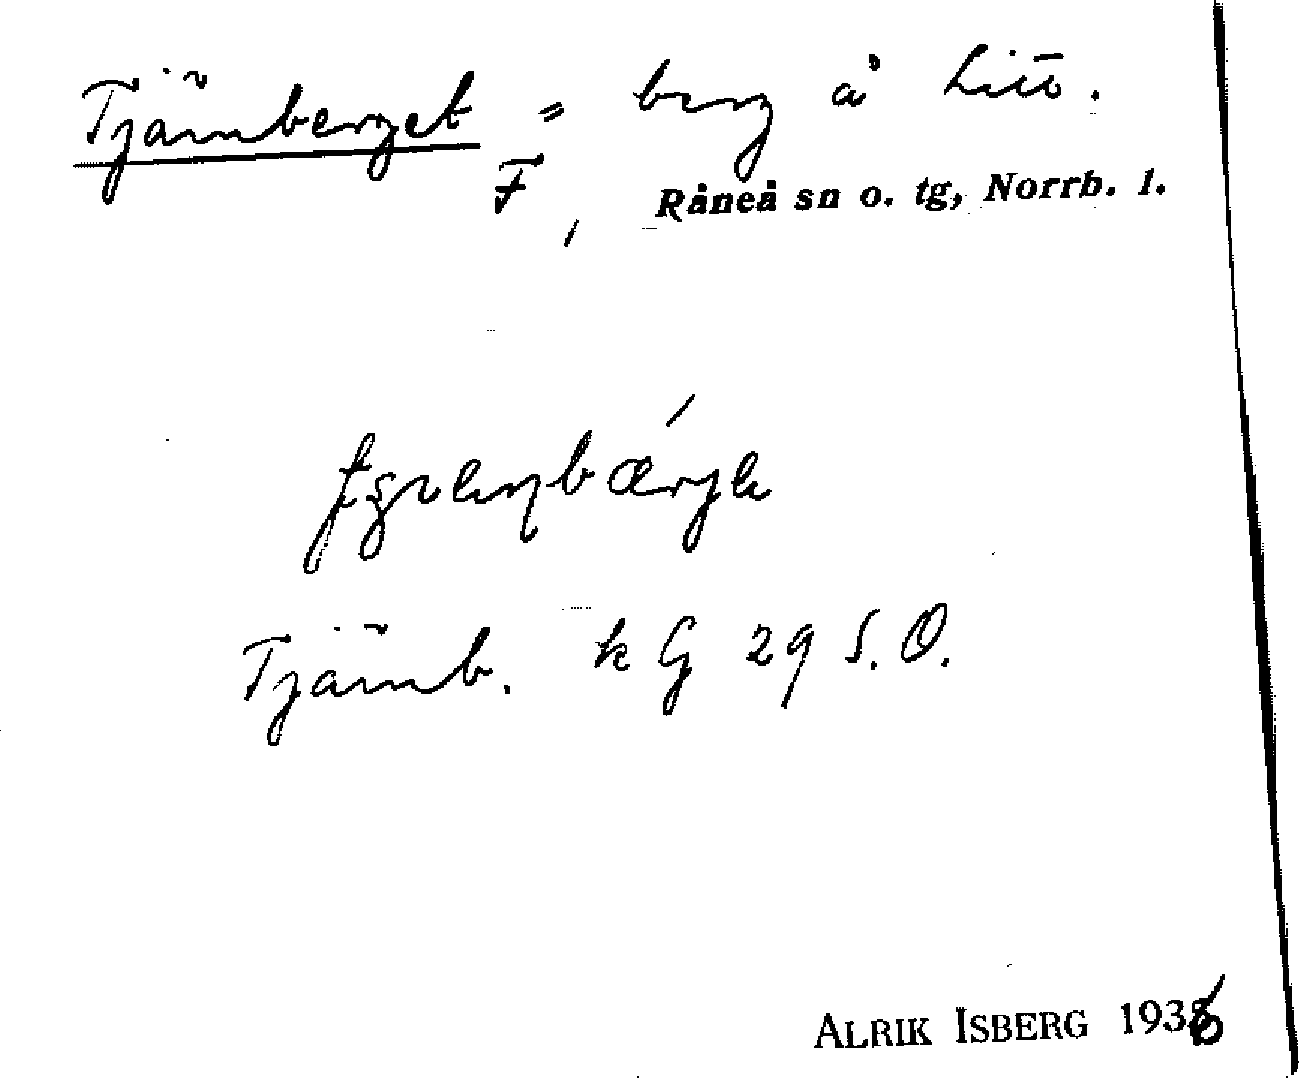 Tjärnberget = berg å Litö.
F, Råneå sn o. tg, Norrb. l.
Tjärnb. kG 29 S.O.
ALRIK ISBERG 1936